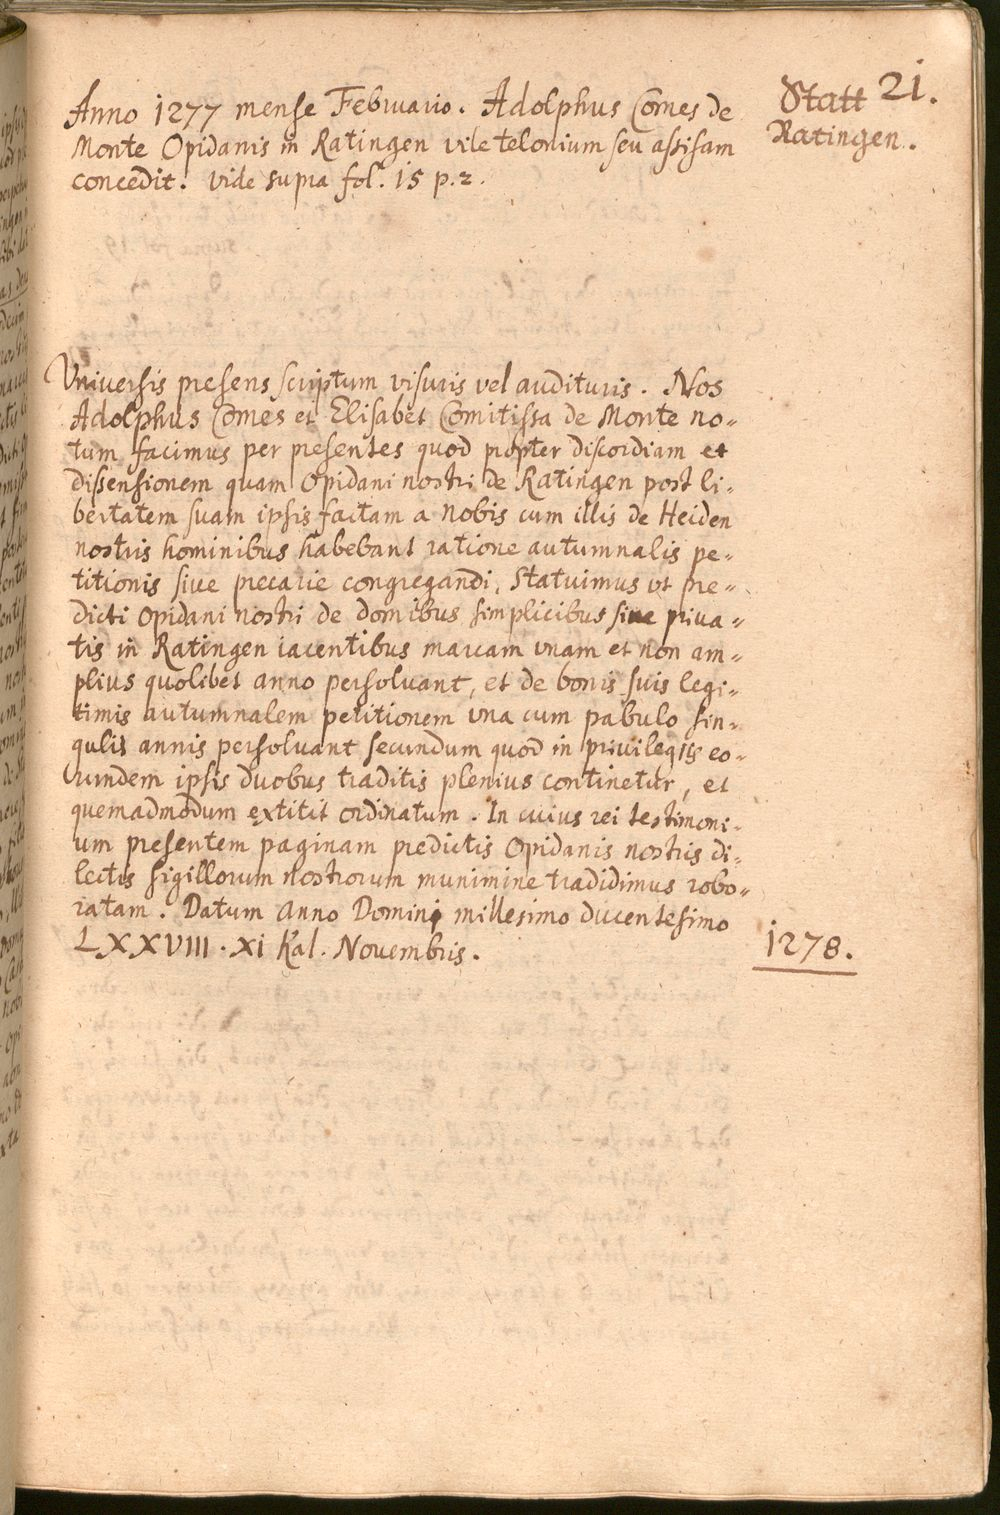 21.
Statt
Ratingen.
Anno 1277 mense Februario. Adolphus Comes de
Monte Opidanis in Ratingen vile telonium seu assisam
concedit. vide supra fol. 15 p. 2.
Vniversis presens scriptum visuris vel audituris. Nos
Adolphus Comes et Elisabet Comitissa de Monte no-
tum facimus per presentes quod propter discordiam et
dissensionem quam Opidani nostri de Ratingen post li-
bertatem suam ipsis factam a nobis cum illis de Heiden
nostris hominibus habebant ratione autumnalis pe-
titionis sive precarie congregandi, Statuimus vt pre-
dicti Opidani nostri de domibus simplicibus sive priua-
tis in Ratingen iacentibus marcam vnam et non am-
plius quolibet anno persoluant, et de bonis suis legi-
timis autumnalem petitionem vna cum pabulo sin-
gulis annis persoluant secundum quod in privilegijs eo-
rumdem ipsis duobus traditis plenius continetur, et
quemadmodum extitit ordinatum. In cuius rei testimoni-
um presentem paginam predictis Opidanis nostris di-
lectis sigillorum nostrorum munimine tradidimus robo-
ratam. Datum Anno Domini millesimo ducentesimo
LXXVIII. XI Kal. Novembris.
1278.